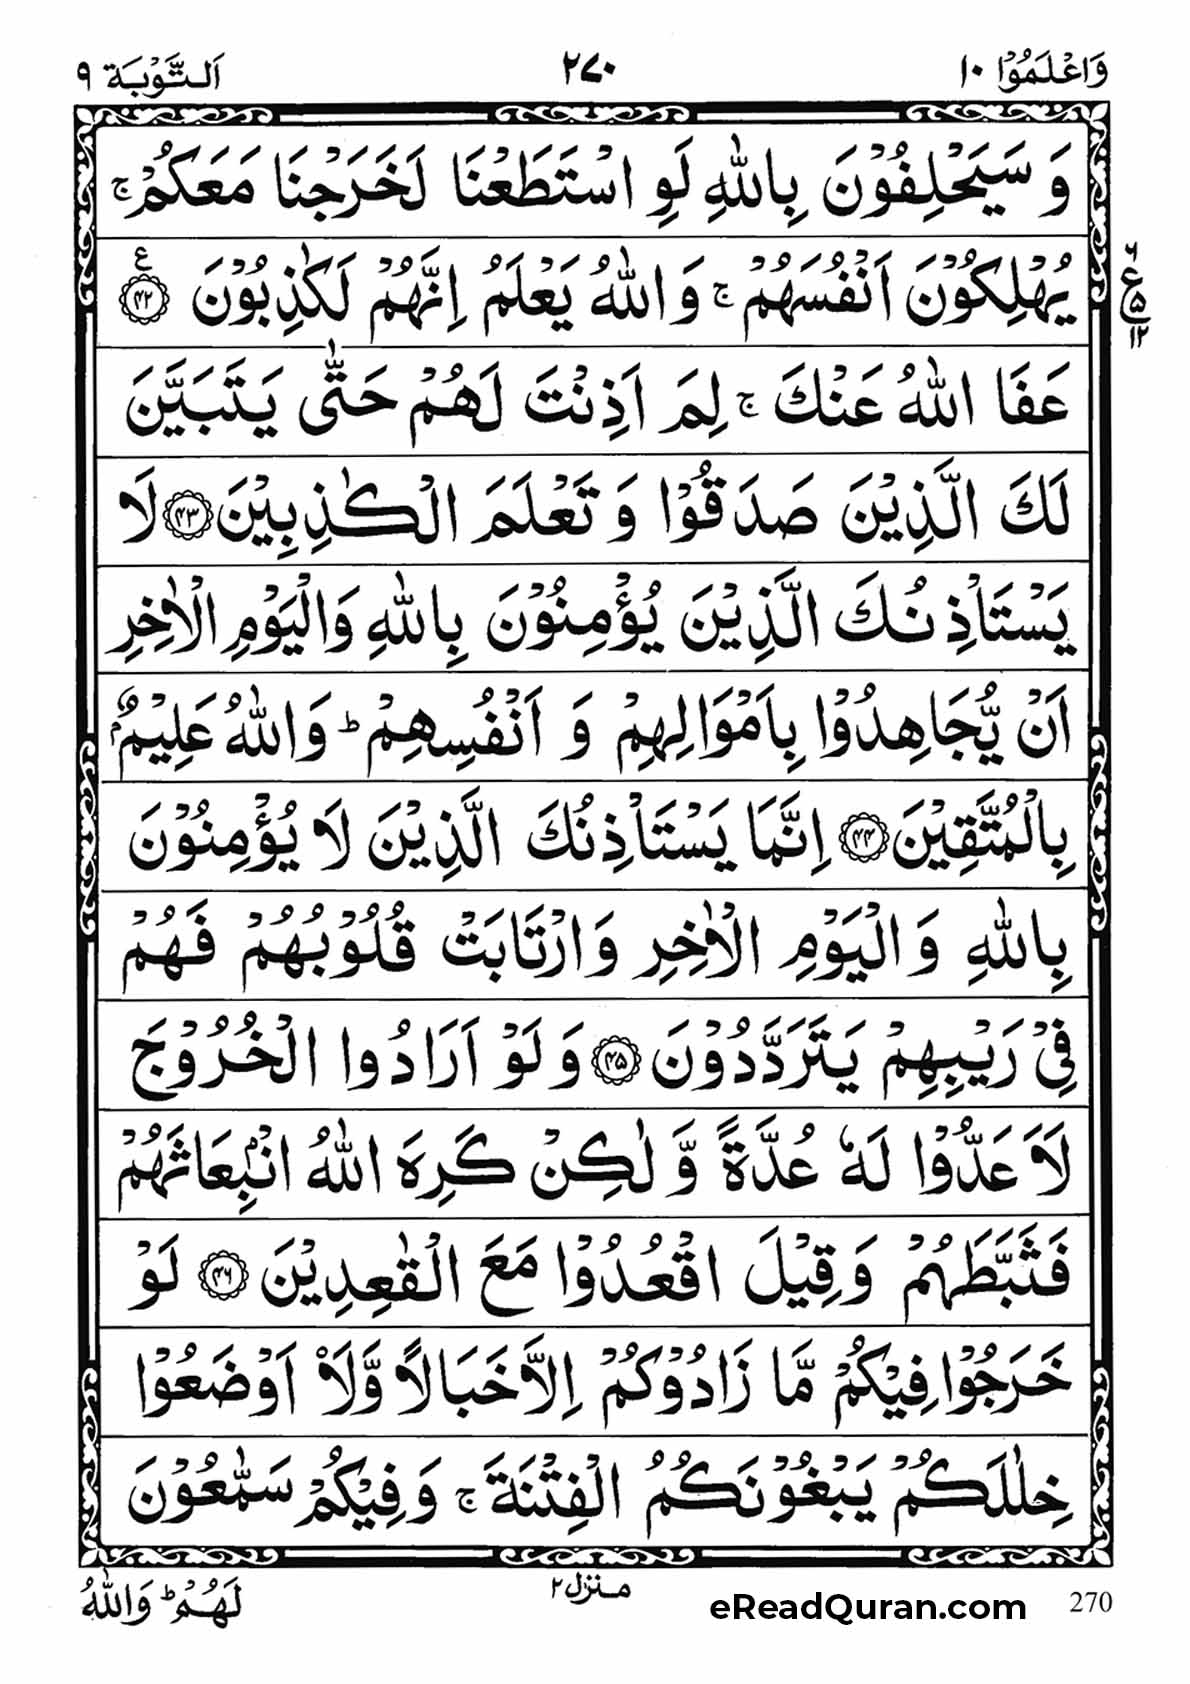 وَاعْلَمُوْۤا ۱۰
۲۷۰
اَلتَّوْبَة ۹
وَ سَيَحْلِفُوْنَ بِاللّٰهِ لَوِ اسْتَطَعْنَا لَخَرَجْنَا مَعَكُمْ ۚ
يُهْلِكُوْنَ اَنْفُسَهُمْ ۚ وَ اللّٰهُ يَعْلَمُ اِنَّهُمْ لَكٰذِبُوْنَ ﴿۴۲﴾ ع
ع ۵ ۱۲
عَفَا اللّٰهُ عَنْكَ ۚ لِمَ اَذِنْتَ لَهُمْ حَتّٰى يَتَبَيَّنَ
لَكَ الَّذِيْنَ صَدَقُوْا وَ تَعْلَمَ الْكٰذِبِيْنَ ﴿۴۳﴾ لَا
يَسْتَاْذِنُكَ الَّذِيْنَ يُؤْمِنُوْنَ بِاللّٰهِ وَالْيَوْمِ الْاٰخِرِ
اَنْ يُّجَاهِدُوْا بِاَمْوَالِهِمْ وَ اَنْفُسِهِمْ ؕ وَاللّٰهُ عَلِيْمٌۢ
بِالْمُتَّقِيْنَ ﴿۴۴﴾ اِنَّمَا يَسْتَاْذِنُكَ الَّذِيْنَ لَا يُؤْمِنُوْنَ
بِاللّٰهِ وَ الْيَوْمِ الْاٰخِرِ وَ ارْتَابَتْ قُلُوْبُهُمْ فَهُمْ
فِيْ رَيْبِهِمْ يَتَرَدَّدُوْنَ ﴿۴۵﴾ وَ لَوْ اَرَادُوا الْخُرُوْجَ
لَاَعَدُّوْا لَهٗ عُدَّةً وَّ لٰكِنْ كَرِهَ اللّٰهُ انْۢبِعَاثَهُمْ
فَثَبَّطَهُمْ وَ قِيْلَ اقْعُدُوْا مَعَ الْقٰعِدِيْنَ ﴿۴۶﴾ لَوْ
خَرَجُوْا فِيْكُمْ مَّا زَادُوْكُمْ اِلَّا خَبَالًا وَّلَا۟اَوْضَعُوْا
خِلٰلَكُمْ يَبْغُوْنَكُمُ الْفِتْنَةَ ۚ وَ فِيْكُمْ سَمّٰعُوْنَ
لَهُمْ ؕ وَاللّٰهُ
منزل ۲
eReadQuran.com
270